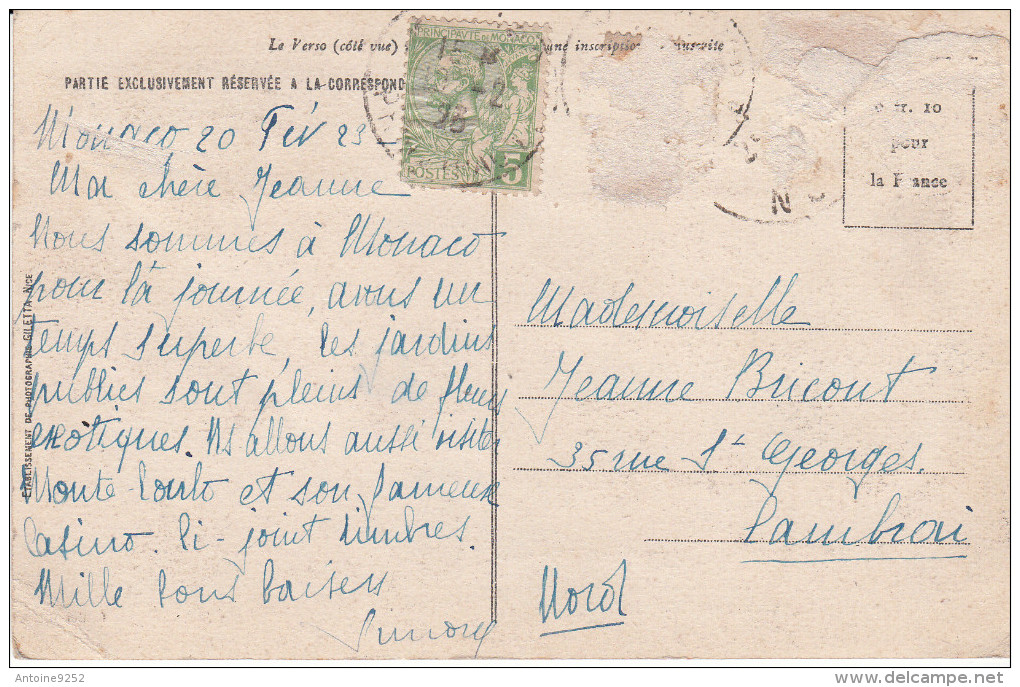 Le Verso (côté vue) une inscription manuscrite
PARTIE EXCLUSIVEMENT RÉSERVÉE A LA CORRESPOND
PRINCIPAUTÉ DE MONACO
POSTES 5
10
pour
la France
Monaco 20 Fév 23
Ma chère Jeanne
Nous sommes à Monaco
pour la journée, avons un
temps superbe, les jardins
publics sont pleins de fleurs
exotiques. Ns allons aussi visiter
Monte-Carlo et son fameux
Casino. Ci-joint timbres.
Mille bons baisers
ÉTABLISSEMENT DE PHOTOGRAPHIE GILETTA NICE
Mademoiselle
Jeanne Bricout
35 rue St Georges.
Cambrai
Nord
Antoine9252